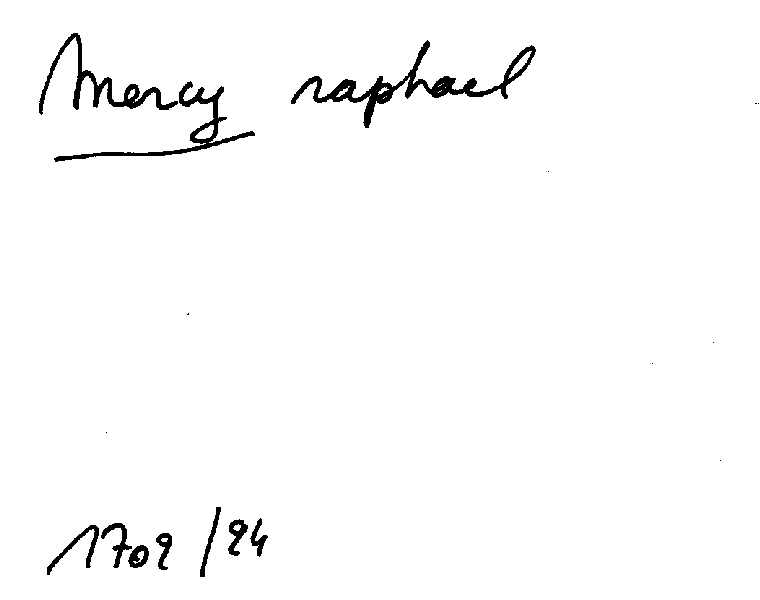 Mercy raphael
1702/24